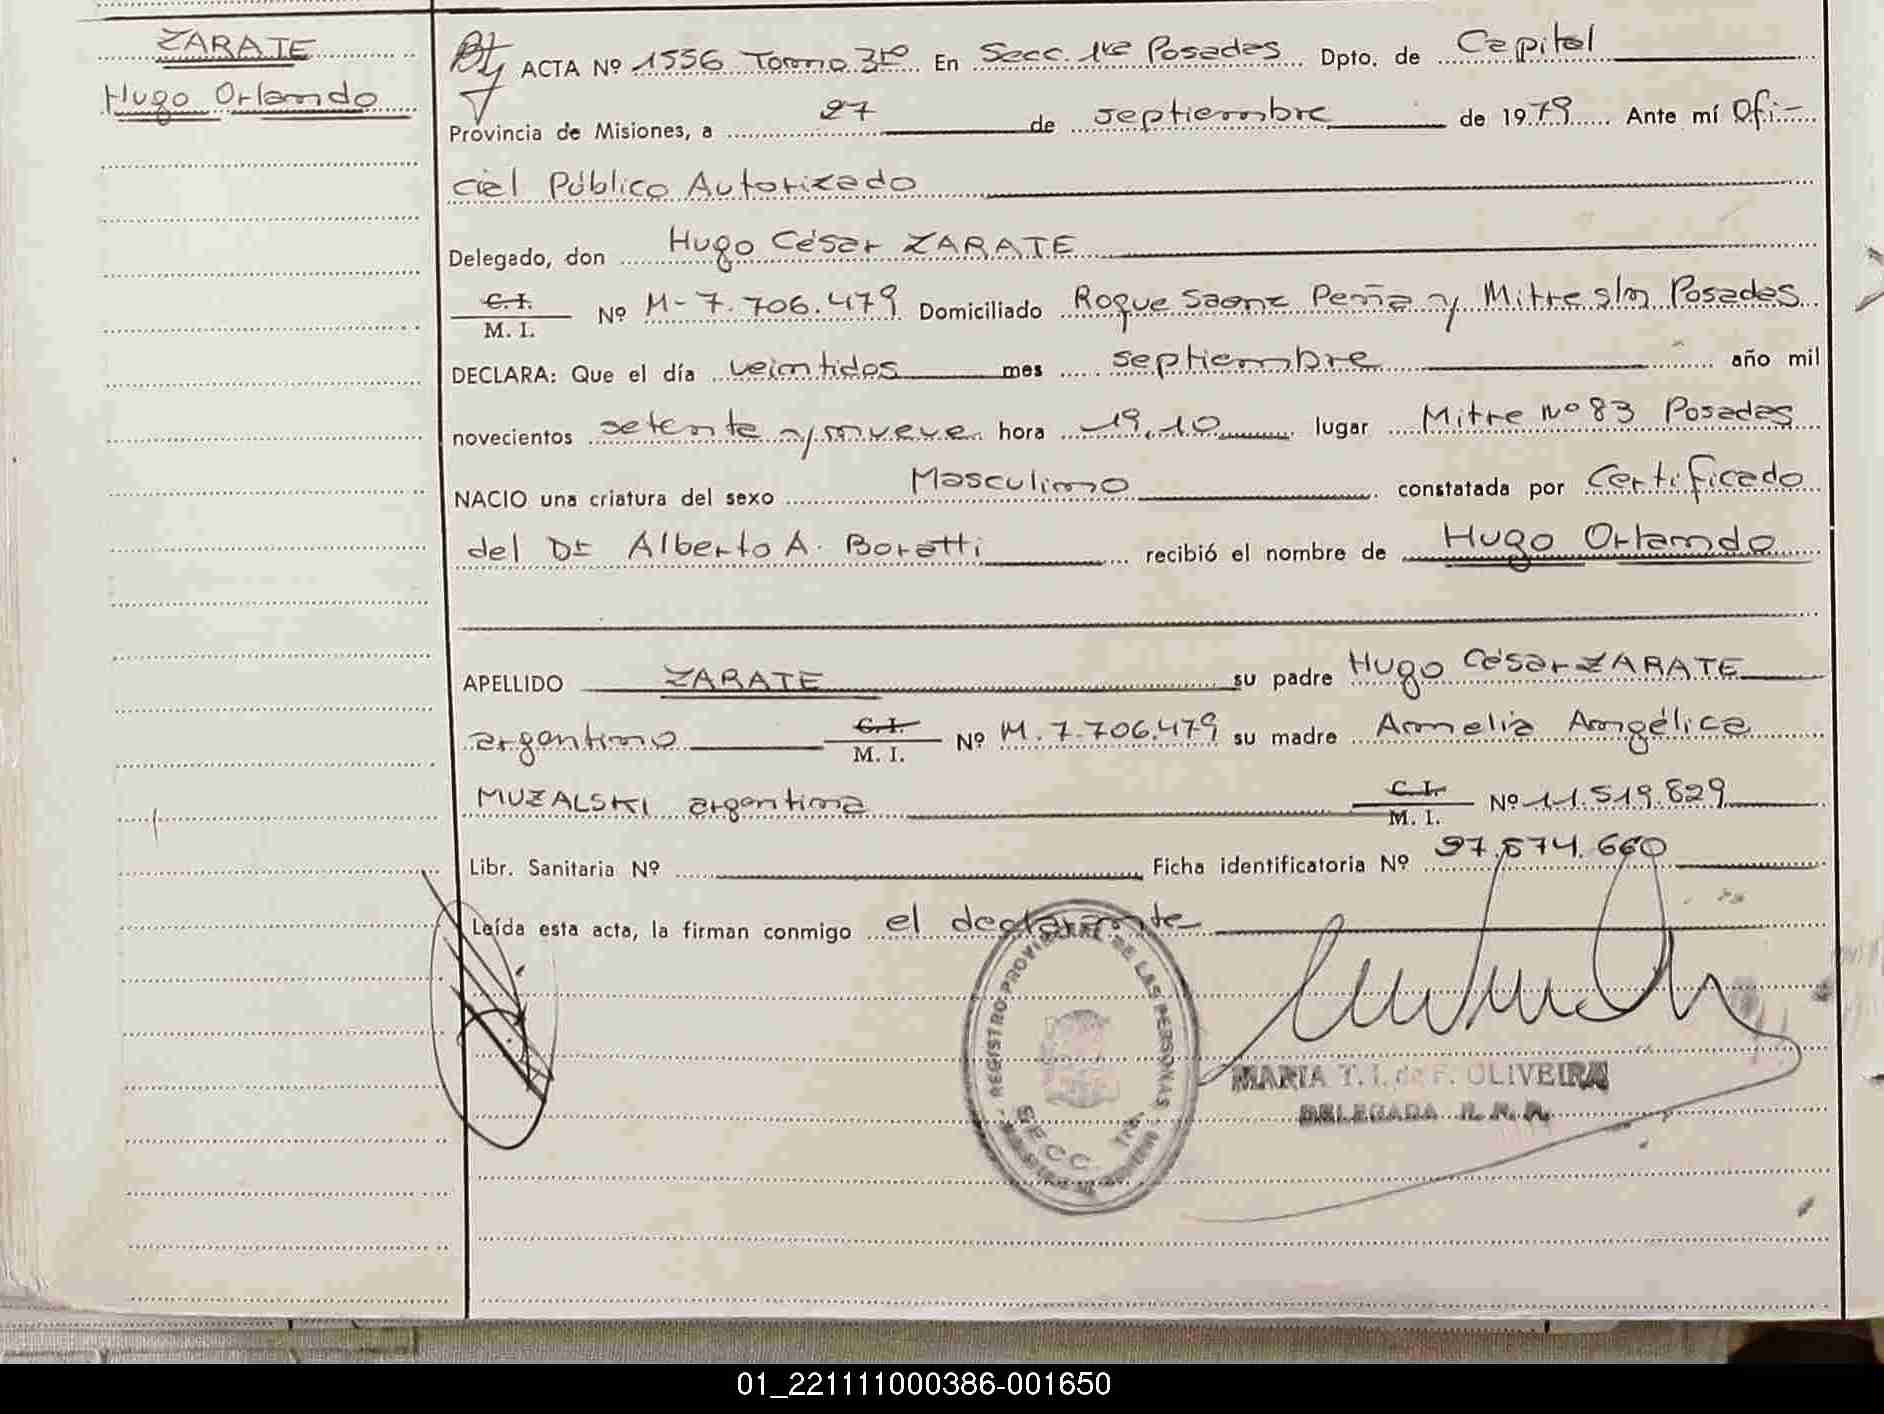 ZARATE
Hugo Orlando
ACTA Nº 1556 Tomo 3ro En Secc. 1ra Posadas Dpto. de Capital
Provincia de Misiones, a 27 de septiembre de 1979 Ante mí Ofi-
cial Público Autorizado
Delegado, don Hugo César ZARATE
C.I.
M. I. Nº M-7.706.479 Domiciliado Roque Saenz Peña y Mitre s/n Posadas
DECLARA: Que el día veintidos mes septiembre año mil
novecientos setenta y nueve hora 19,10 lugar Mitre Nº 83 Posadas
NACIO una criatura del sexo Masculino constatada por Certificado
del Dr Alberto A. Boratti recibió el nombre de Hugo Orlando
APELLIDO ZARATE su padre Hugo César ZARATE
argentino C.I.
M. I. Nº M.7.706.479 su madre Amelia Angélica
MUZALSKI argentina C.I.
M. I. Nº 11.519.829
Libr. Sanitaria Nº Ficha identificatoria Nº 27.674.660
Leída esta acta, la firman conmigo el declarante
REGISTRO PROVINCIAL DE LAS PERSONAS
SECC. 1ra.
MARIA T. I. de F. OLIVEIRA
DELEGADA R. P. P.
01_221111000386-001650